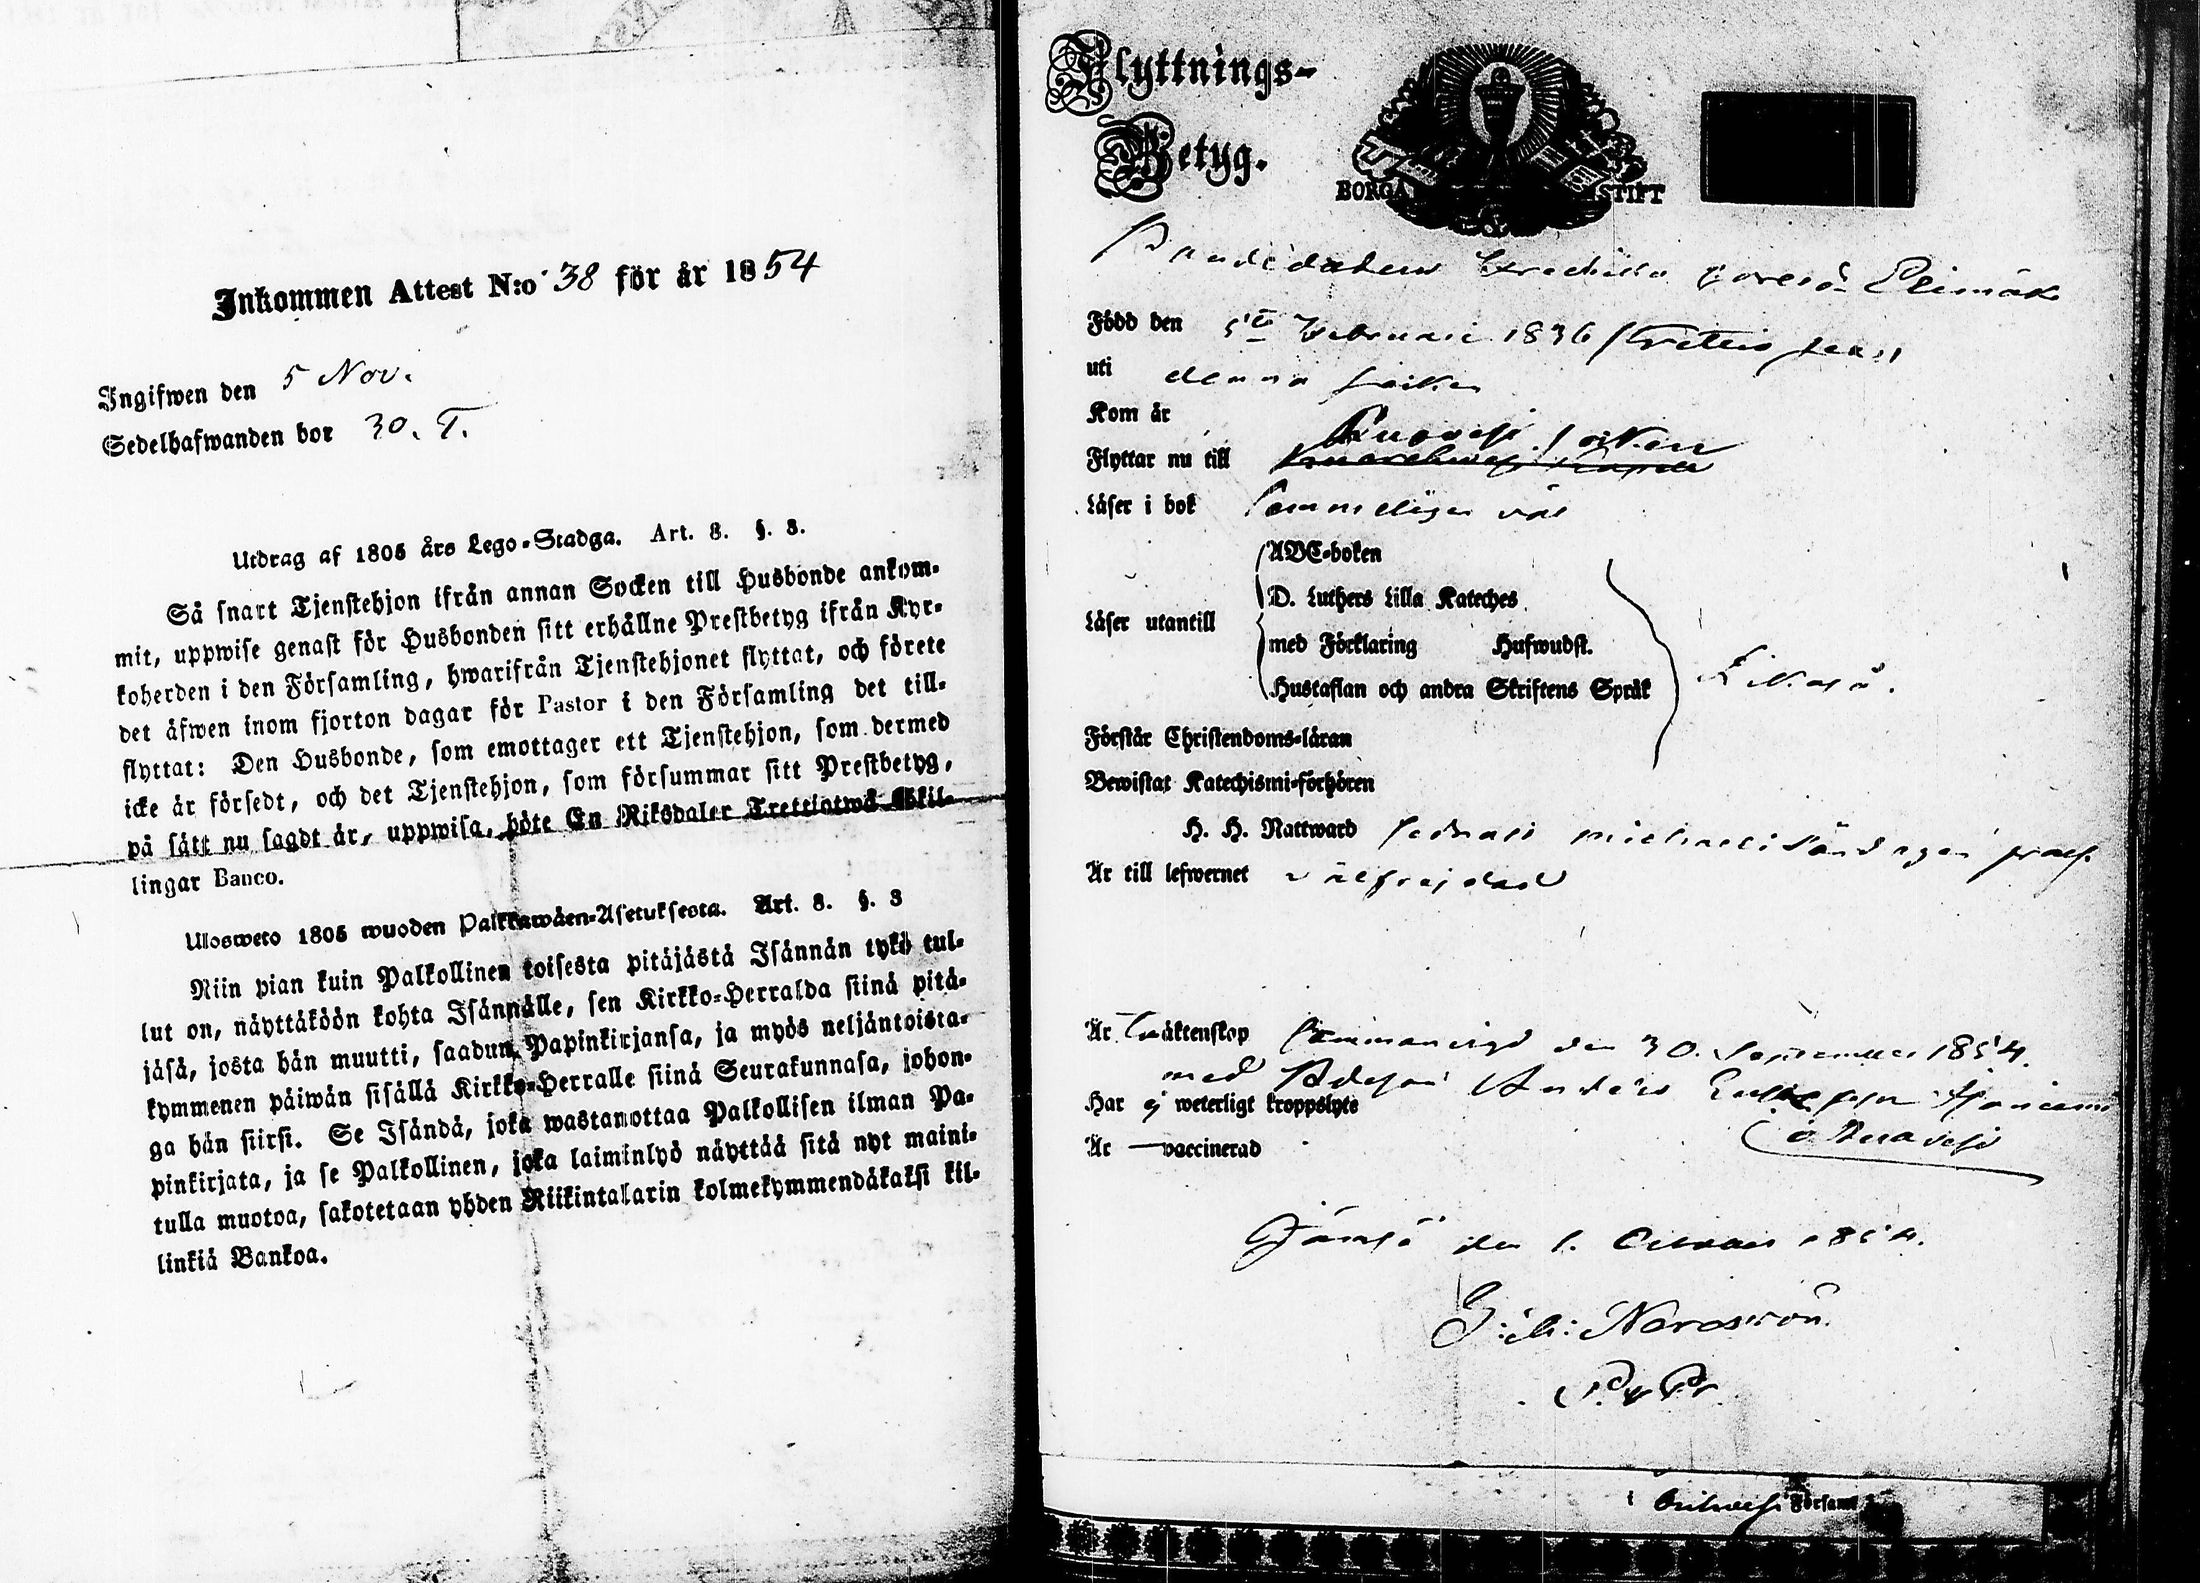 Inkommen Attest N:o 38 för år 1854
Ingifwen den 5 Nov.
Sedelhafwanden bor 30. T.
Utdrag af 1805 års Lego-Stadga. Art. 8. §. 3.
Så snart Tjenstehjon ifrån annan Socken till Husbonde ankom-
mit, uppwise genast för Husbonden sitt erhållne Prestbetyg ifrån Kyr-
koherden i den Församling, hwarifrån Tjenstehjonet flyttat, och förete
det äfwen inom fjorton dagar för Pastor i den Församling det till-
flyttat: Den Husbonde, som emottager ett Tjenstehjon, som dermed
icke är försedt, och det Tjenstehjon, som försummar sitt Prestbetyg,
på sätt nu sagdt är, uppwisa, böte En Riksdaler Trettiotwå Skil-
lingar Banco.
Ulosweto 1805 wuoden Palkkawäen-Asetuksesta. Art. 8. §. 3
Niin pian kuin Palkollinen toisesta pitäjästä Isännän tykö tul-
lut on, näyttäköön kohta Isännälle, sen Kirkko-Herralda siinä pitä-
jäsä, josta hän muutti, saadun Papinkirjansa, ja myös neljäntoista-
kymmenen päiwän sisällä Kirkko-Herralle siinä Seurakunnasa, johon-
ga hän siirsi. Se Isändä, joka wastanottaa Palkollisen ilman Pa-
pinkirjata, ja se Palkollinen, joka laiminlyö näyttää sitä nyt maini-
tulla muotoa, sakotetaan yhden Riikintalarin kolmekymmendäkaksi kil-
linkiä Bankoa.
Flyttnings-
Betyg.
BORGÅ STIFT
Född den 5te Februari 1836
uti denna Socken
Kom år
Socken
Flyttar nu till
Läser i bok Sammeligen väl
ABC-boken
D. Luthers Lilla Kateches
Läser utantill
med Förklaring Hufwudst.
Hustaflan och andra Skriftens Språk
Likaså.
Förstår Christendoms-läran
Bewistat Katechismi-förhören
H. H. Nattward sednast michaeli Söndagen
Är till lefwernet välfrejdad
Är äktenskap Sammanvigd den 30. September 1854.
med Anders
Har ej weterligt kroppslyte
Är — vaccinerad
Jämsä den 1. October 1854.
i Församl